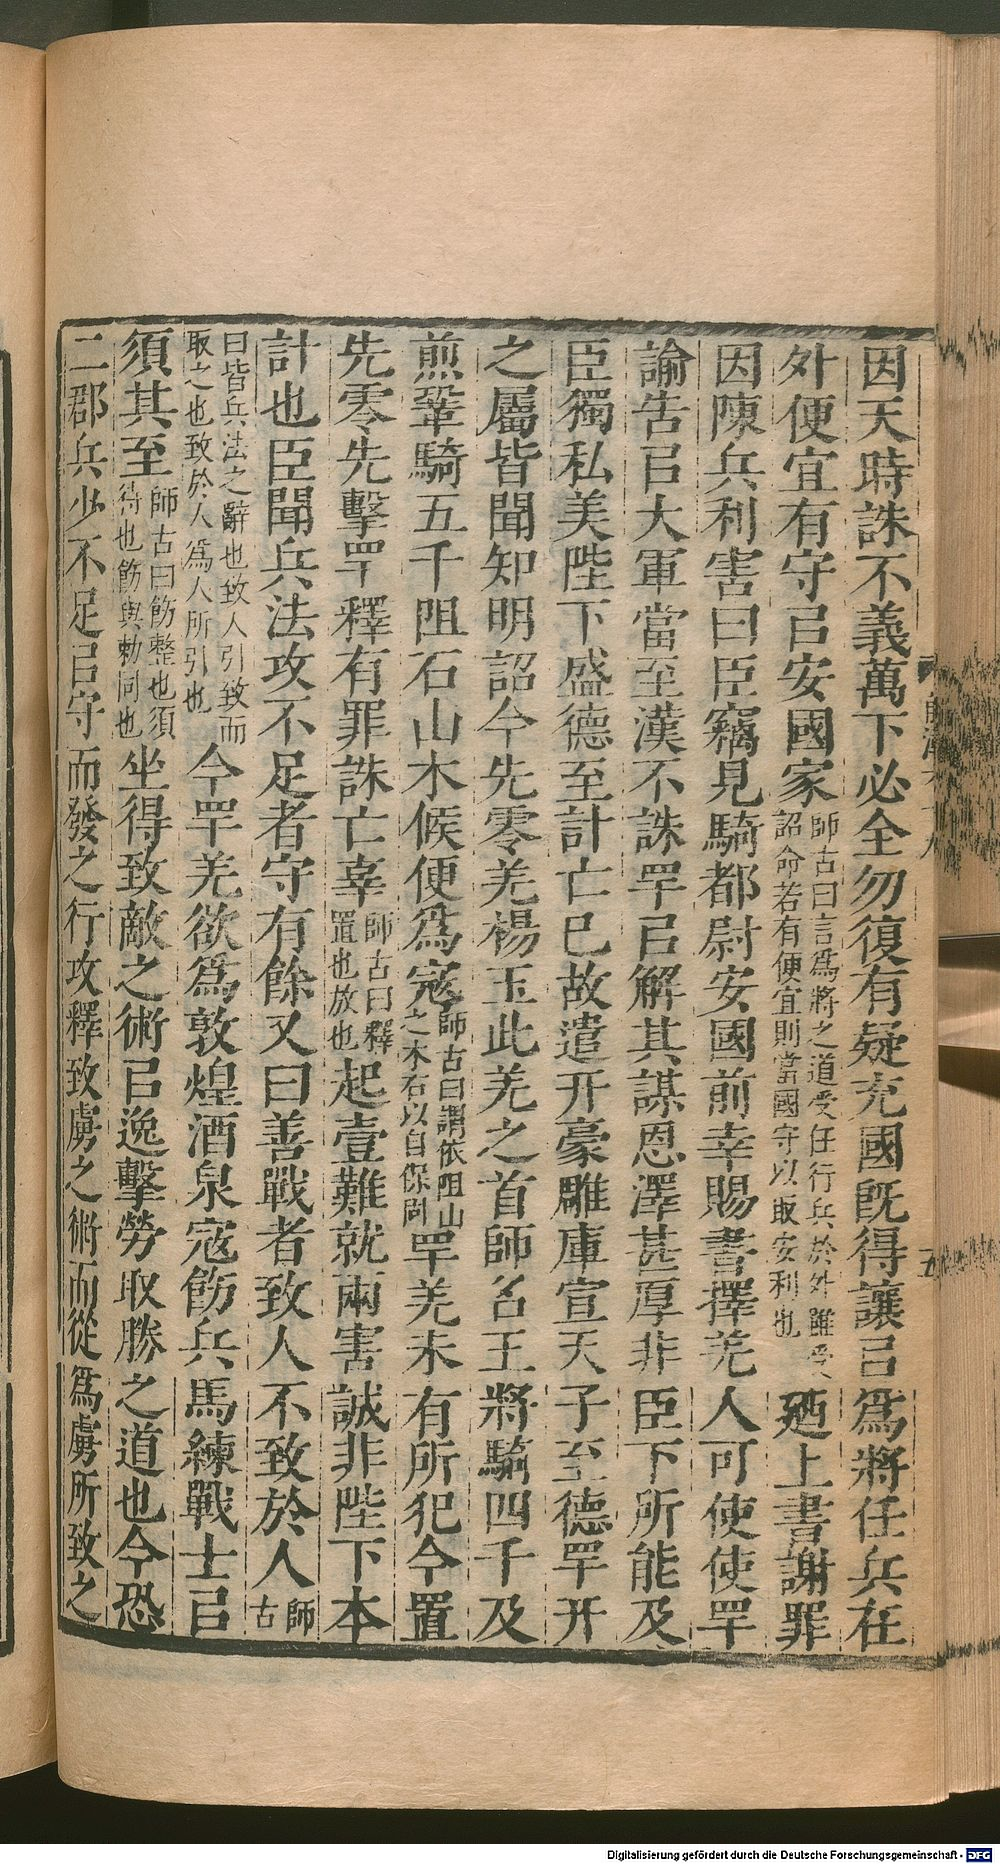 因天時誅不義萬下必全勿復有疑充國旣得讓㠯爲將任兵在
外便宜有守㠯安國家師古曰言爲將之道受任行兵於外雖受詔命若有便宜則當國守以取安利也廼上書謝罪
因陳兵利害曰臣竊見騎都尉安國前幸賜書擇羌人可使使罕
諭告㠯大軍當至漢不誅罕㠯解其謀恩澤甚厚非臣下所能及
臣獨私美陛下盛德至計亡已故遣幵豪雕庫宣天子至德罕幵
之屬皆聞知明詔今先零羌楊玉此羌之首師名王將騎四千及
煎鞏騎五千阻石山木候便爲寇師古曰謂依阻山之木石以自保固罕羌未有所犯今置
先零先擊罕釋有罪誅亡辜師古曰釋置也放也起壹難就兩害誠非陛下本
計也臣聞兵法攻不足者守有餘又曰善戰者致人不致於人師古
曰皆兵法之辭也致人引致而取之也致於人爲人所引也今罕羌欲爲敦煌酒泉寇飭兵馬練戰士㠯
須其至師古曰飭整也須待也飭與勅同也坐得致敵之術㠯逸擊勞取勝之道也今恐
二郡兵少不足㠯守而發之行攻釋致虜之術而從爲虜所致之
五
Digitalisierung gefördert durch die Deutsche Forschungsgemeinschaft - DFG